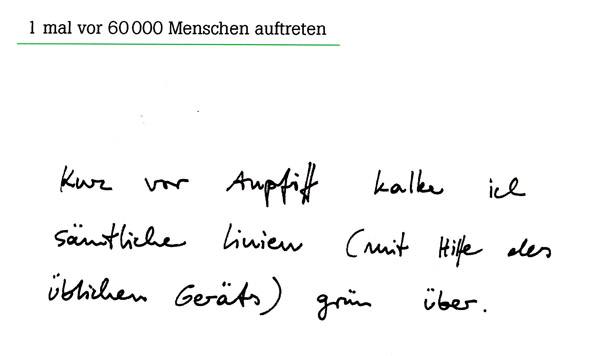 1 mal vor 60 000 Menschen auftreten
Kurz vor Anpfiff kalke ich
sämtliche Linien (mit Hilfe des
üblichen Geräts) grün über.